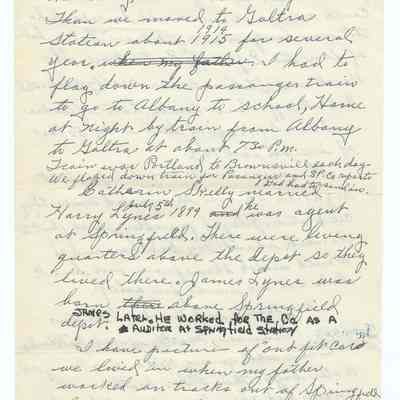 Than we moved to Goltra
1914
Station about 1915 for several
year. when my father I had to
flag down the passanger train
to go to Albany to school, Home
at night by train from Albany
to Goltra at about 7 30 P.M.
Train was Portland to Brownsville each day
We flaged down train for Passenger and SP. Co reports
Dad had to send in.
Catharin Skelly married
July 5th
Harry Lynes 1899 and he was agent
at Springfield. There were living
quarters above the depot so they
lived there. James Lynes was
born there above Springfield
depot. JAMES LATER. HE WORKED FOR THE CO AS A
AUDITOR AT SPRINGFIELD STATION
I have picture of "out fit cars
we lived in when my father
worked on tracks out of Springfield